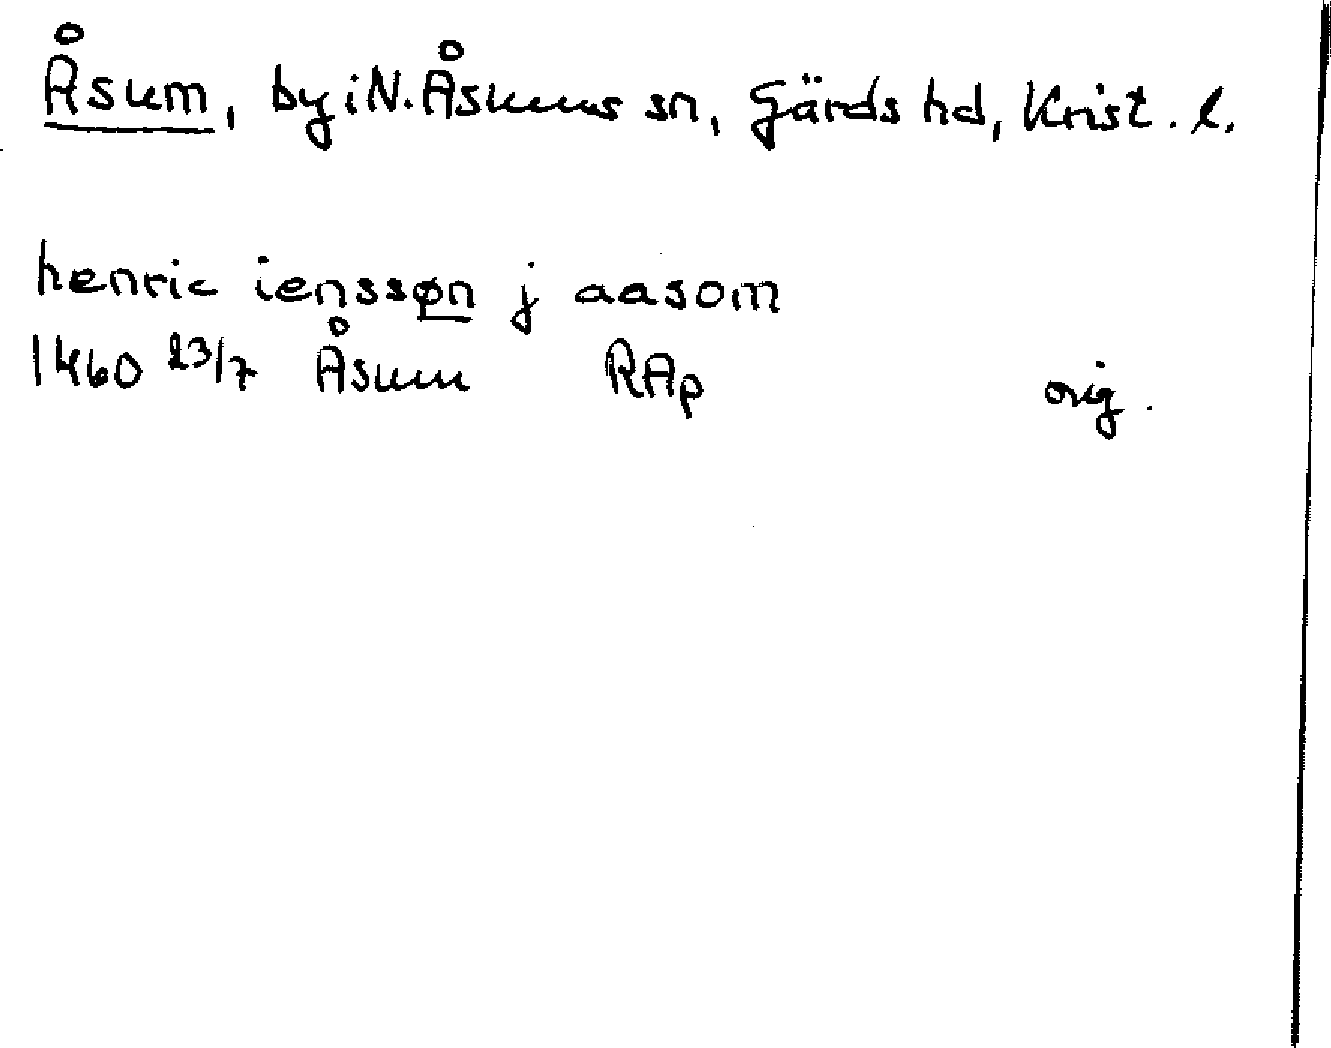 Åsum, by i N. Åsums sn, Gärds hd, Krist. l.
henric ienssøn j aasom
1460 23/7 Åsum RAp orig.